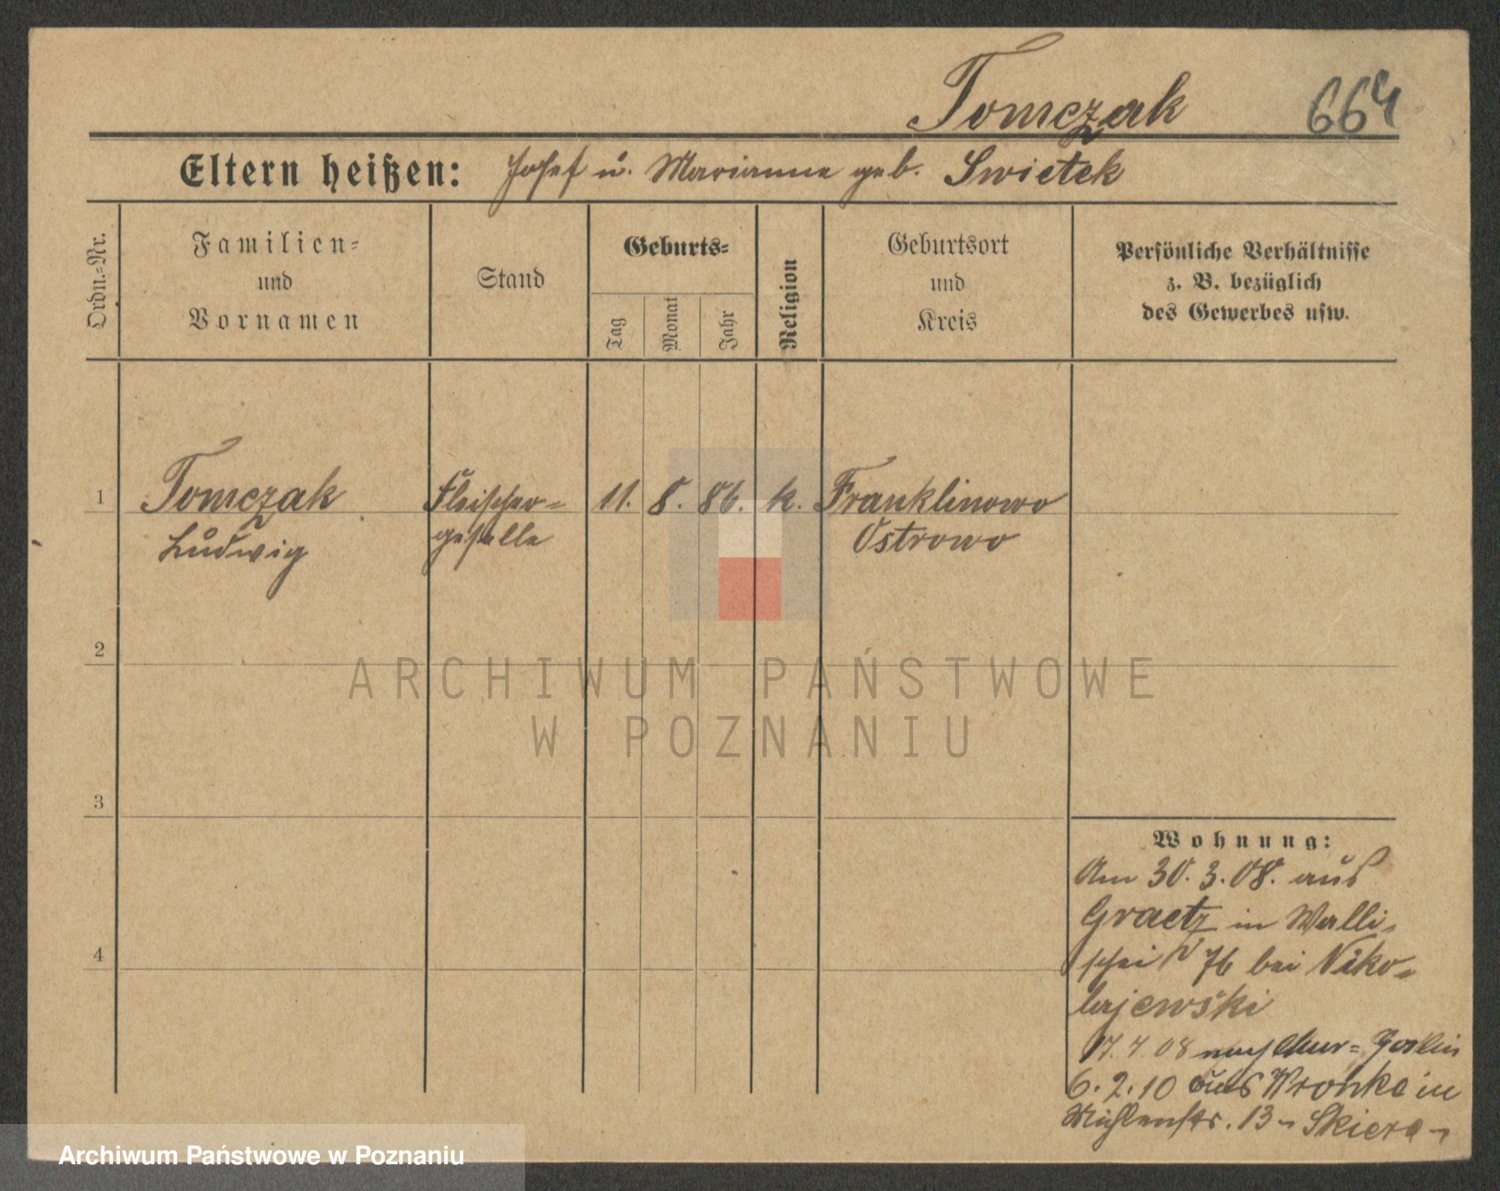 Tomczak 664
Eltern heißen: Josef u. Marianna geb. Swietek
Ordn.=Nr.
Familien=
und
Vornamen
Stand
Geburts=
Tag
Monat
Jahr
Religion
Geburtsort
und
Kreis
Persönliche Verhältnisse
z. B. bezüglich
des Gewerbes usw.
1 Tomczak Fleischer= 11. 8. 86. k. Franklinowo
Ludwig geselle Ostrowo
2
3
4
ARCHIWUM PAŃSTWOWE
W POZNANIU
Wohnung:
Am 30.3.08. aus
Graetz in Walli=
schei 76 bei Niko=
lajewski
17.4.08 nach Mur=Goslin
6.2.10 aus Wronke in
Mühlenstr. 13 Skiera
Archiwum Państwowe w Poznaniu